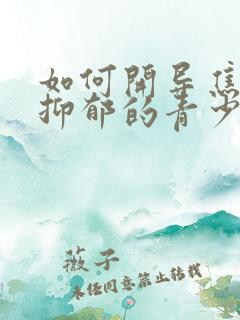 如何開导焦
抑郁的青少
薇子
未经同意禁止转载